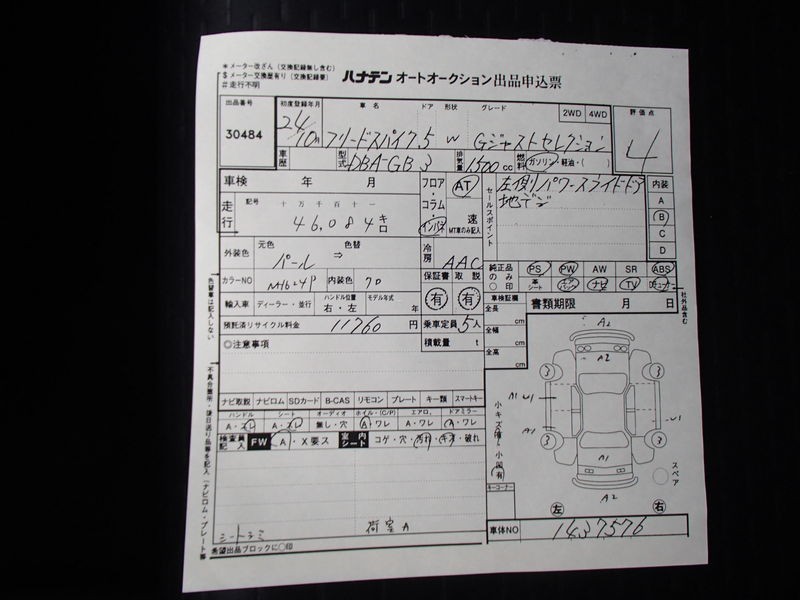 ＊メーター改ざん（交換記録無し含む）
＄メーター交換歴有り（交換記録簿）
＃走行不明
ハナテン オートオークション出品申込票
出品番号 初度登録年月 車名 ドア 形状 グレード 2WD 4WD 評価点
30484 24/10月 フリードスパイク 5 W Gジャストセレクション 4
車歴 型式 DBA-GB3 排気量 1,500cc 燃料 ガソリン・軽油・( )
車検 年 月 フロア・コラム・インパネ AT 速 MT車のみ記入
セールスポイント 左側パワースライドドア 地デジ
内装 A B C D
走行 記号 十万千百十一
46,084キロ
外装色 元色 色替 パール ⇒ 冷房 AAC
純正品のみ〇印 PS PW AW SR ABS
革シート エアバッグ ナビ TV
カラーNO NH624P 内装色 70 保証書 有 取説 有
輸入車 ディーラー・並行 ハンドル位置 右・左 モデル年式 年
車検証欄 書類期限 月 日
社外品含む
全長 cm
全幅 cm
全高 cm
預託済リサイクル料金 11760円 乗車定員 5人
積載量 t
◎注意事項
色替車は記入しない
不具合箇所・後日送り品等を記入（ナビロム・プレート等
ナビ取説 ナビロム SDカード B-CAS リモコン プレート キー類 スマートキー
ハンドル シート オーディオ ホイル・(C/P) エアロ. ドアミラー
A・スレ A・スレ 無し・穴 A・ワレ A・ワレ A・ワレ
検査員記入 FW A・X要ス 室内シート コゲ・穴・汚れ・キズ・破れ
小キズ有り 小凹有
キーコーナー
A2
A2
3 3
A1 W1 U1
A1
3 3
A1
A2
スペア
左 右
シートシミ 荷室A
希望出品ブロックに〇印
車体NO 1437576